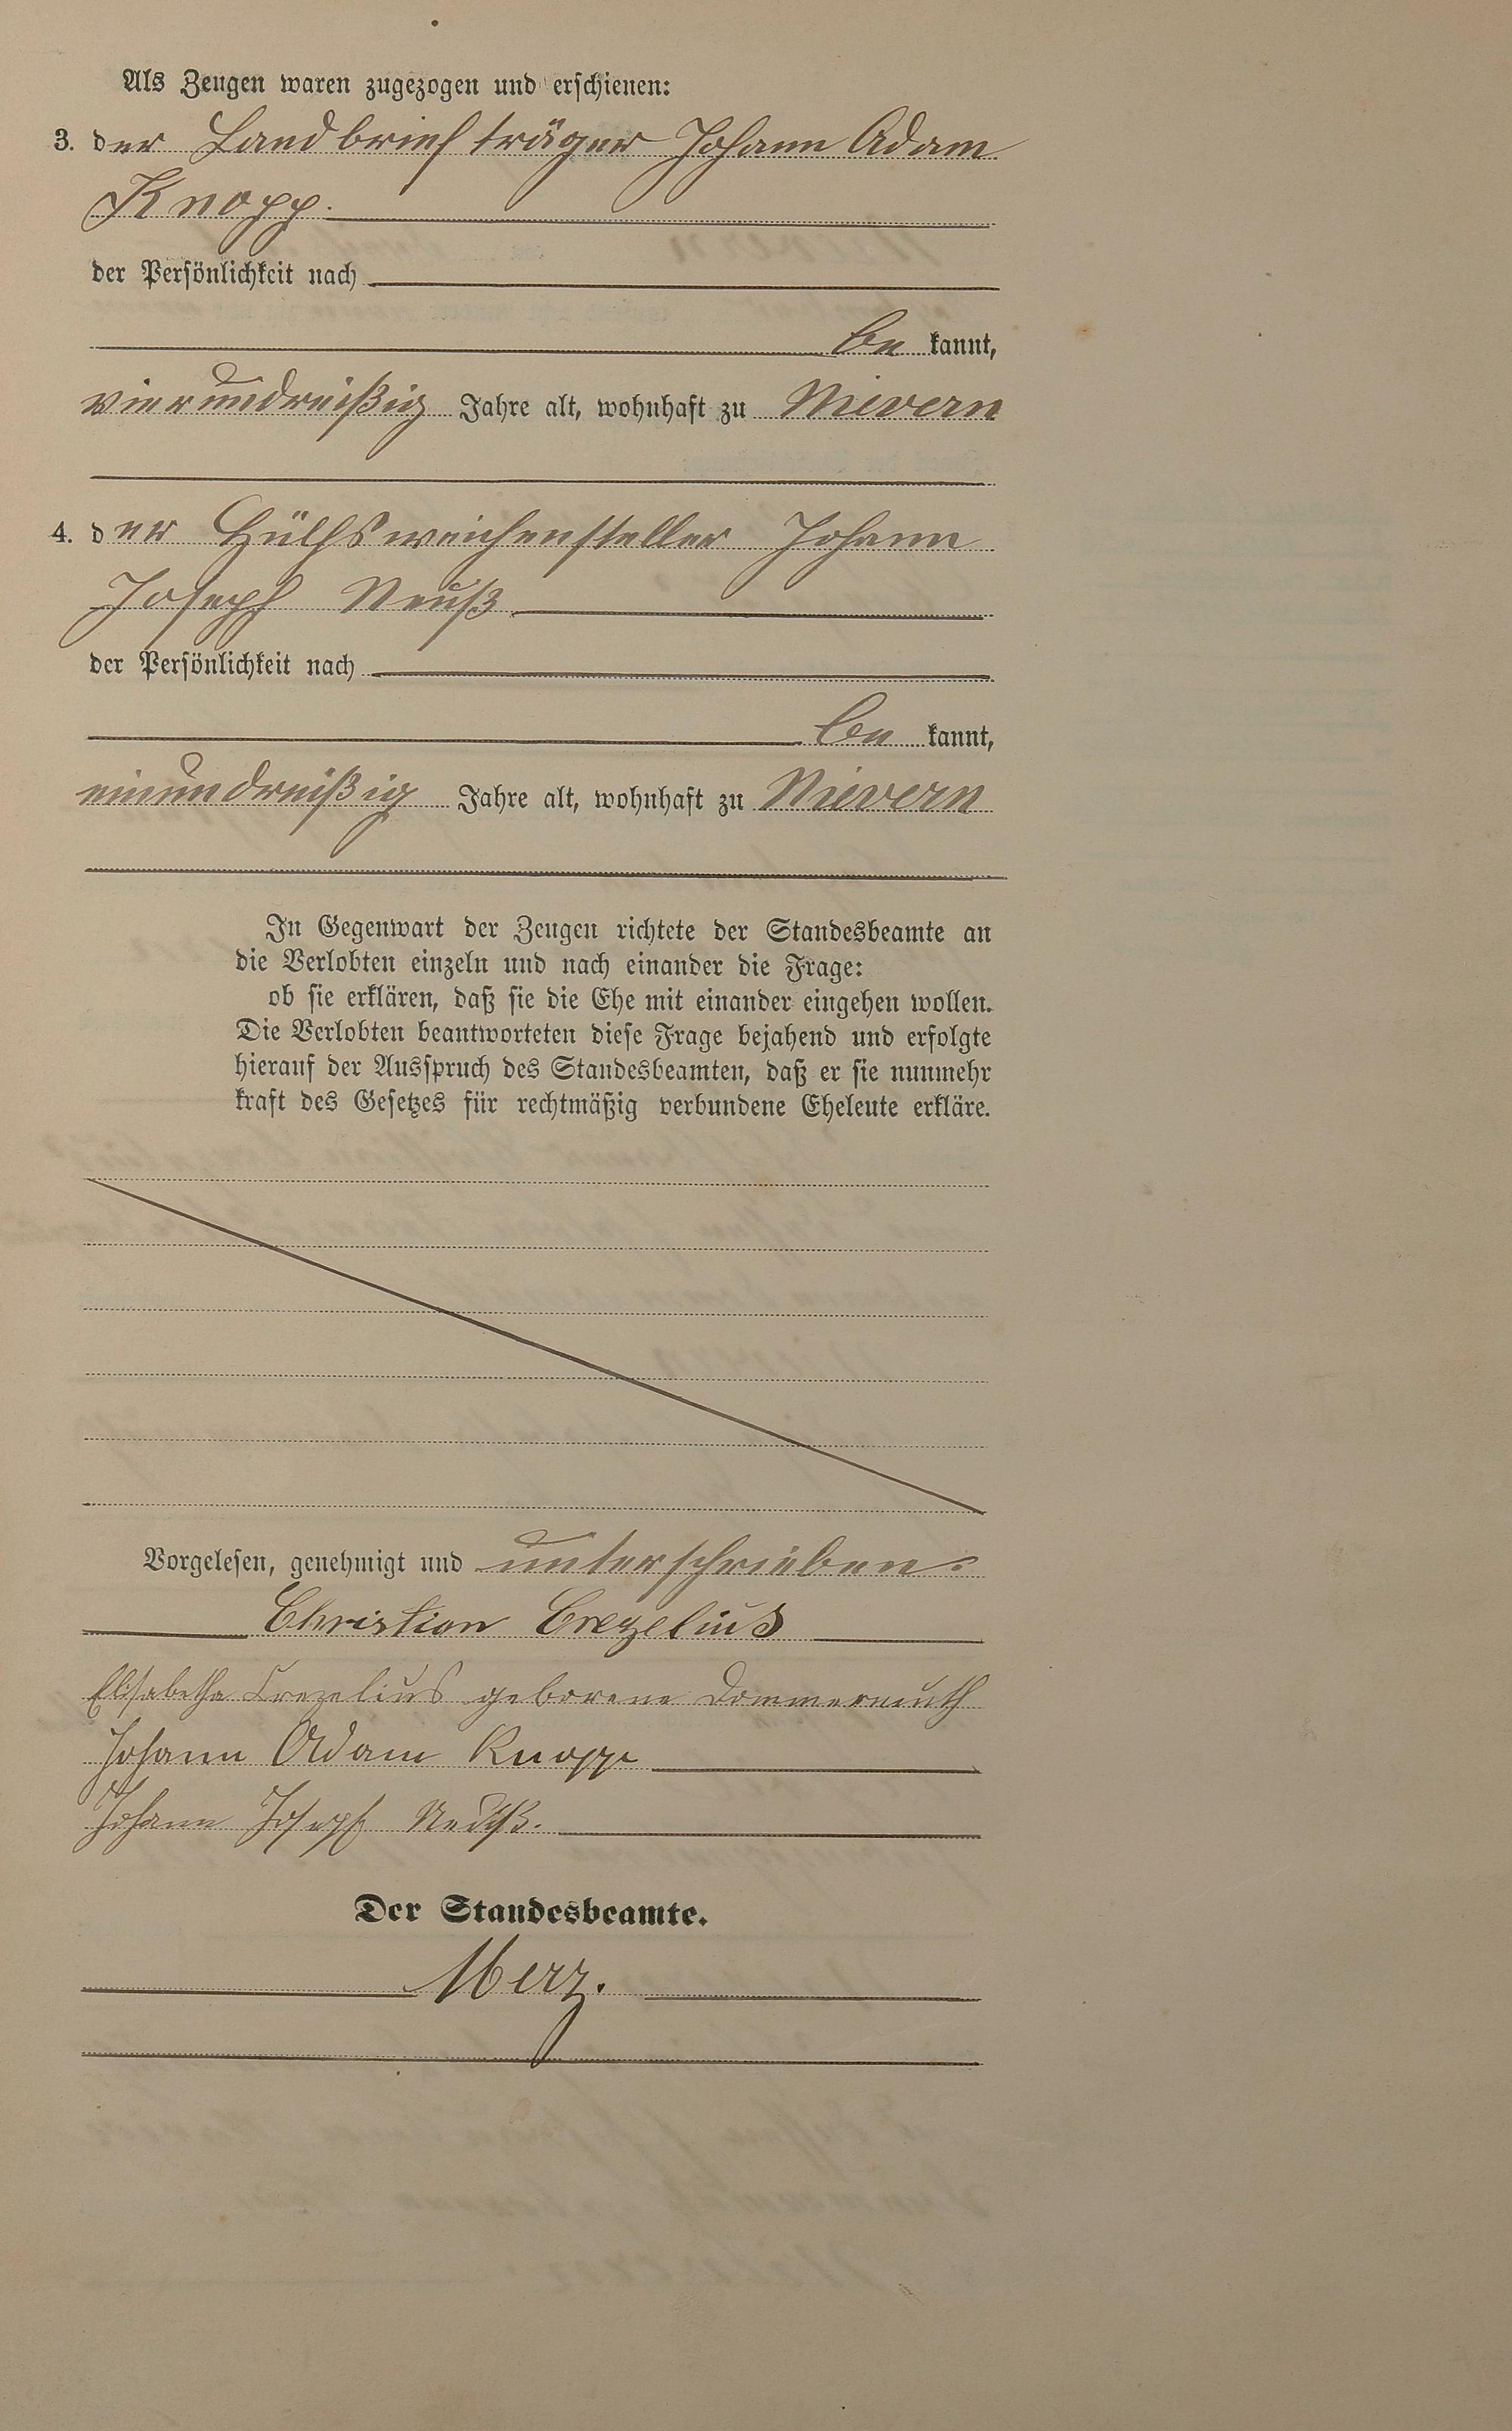 Als Zeugen waren zugezogen und erschienen:
3. der Landbriefträger Johann Adam
Knopp.
der Persönlichkeit nach
be kannt,
vierundreißig Jahre alt, wohnhaft zu Nievern
4. der Hülfsweichensteller Johann
Joseph Neuß
der Persönlichkeit nach
be kannt,
einundreißig Jahre alt, wohnhaft zu Nievern
In Gegenwart der Zeugen richtete der Standesbeamte an
die Verlobten einzeln und nach einander die Frage:
ob sie erklären, daß sie die Ehe mit einander eingehen wollen.
Die Verlobten beantworteten diese Frage bejahend und erfolgte
hierauf der Ausspruch des Standesbeamten, daß er sie nunmehr
kraft des Gesetzes für rechtmäßig verbundene Eheleute erkläre.
Vorgelesen, genehmigt und unterschrieben:
Christian Crezelius
Elisabetha Crezelius geborene Dommermuth
Johann Adam Knopp
Johann Joseph Neuß.
Der Standesbeamte.
Merz.